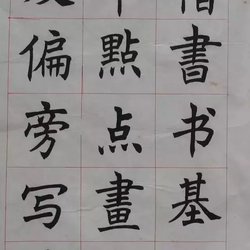 書书基
點点畫
偏旁写